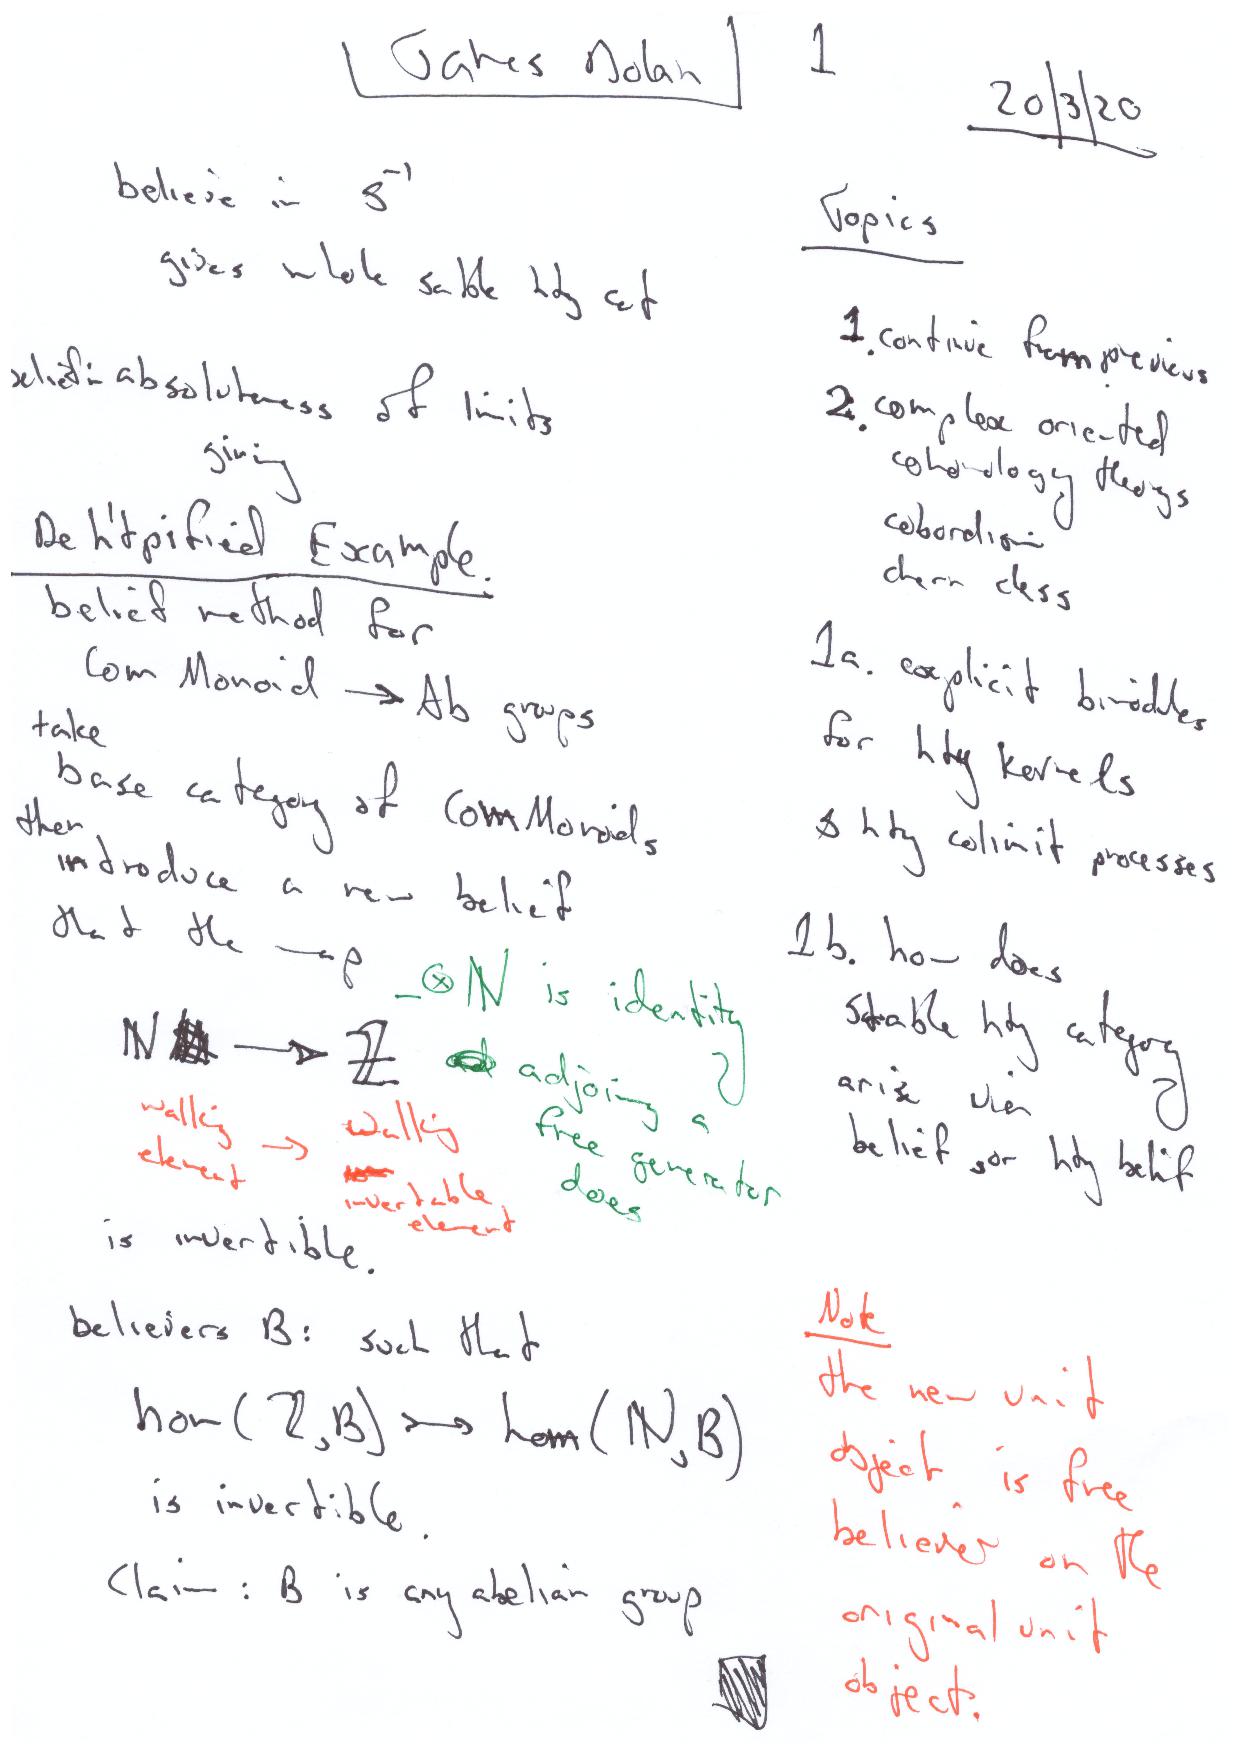 James Dolan 1
20/3/20
believe in S⁻¹
gives whole sable hty cat
belief in absoluteness of limits
giving
De h'tpified Example.
belief method for
Com Monoid → Ab groups
take
base category of ComMonoids
then
introduce a new belief
that the map
ℕ → ℤ
walking element → walking invertable element
_⊗ℕ is identity
adjoing a
free generator
does
is invertible.
believers B: such that
hom(ℤ,B) → hom(ℕ,B)
is invertible.
Claim: B is any abelian group
Topics
1. continue from previous
2. complex oriented
cohomology theorys
cobordism
chern class
1a. explicit bimodules
for hty kernels
& hty colimit processes
1b. how does
stable hty category
arise via
belief or hty belief
Note
the new unit
object is free
believer on the
original unit
object.